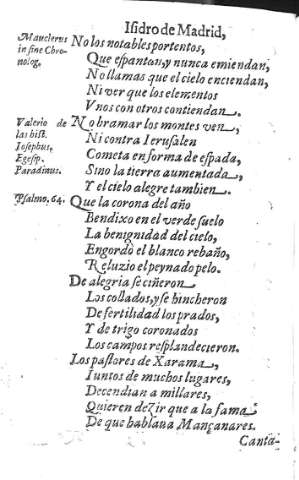 Isidro de Madrid,
Mauclerus
in fine Chro-
nolog.
No los notables portentos,
Que espantan, y nunca emiendan,
No llamas que el cielo enciendan,
Ni ver que los elementos
Vnos con otros contiendan.
Valerio de
las hist.
Iosephus,
Egesip.
Paradinus.
No bramar los montes ven,
Ni contra Ierusalen
Cometa en forma de espada,
Sino la tierra aumentada,
Y el cielo alegre tambien.
Psalmo. 64.
Que la corona del año
Bendixo en el verde suelo
La benignidad del cielo,
Engordò el blanco rebaño,
Reluzio el peynado pelo.
De alegria se ciñeron
Los collados, y se hincheron
De fertilidad los prados,
Y de trigo coronados
Los campos resplandecieron.
Los pastores de Xarama,
Iuntos de muchos lugares,
Decendian a millares,
Quieren dezir que a la fama
De que hablaua Mançanares.
Canta-